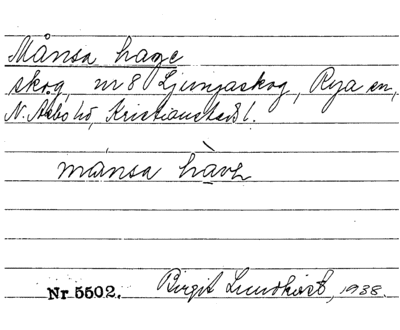 Månsa hage
skog, nr 8 Ljungaskog, Rya sn,
N. Åsbo hd, Kristianstads l.
månsa hàvh
Nr 5502. Birgit Lundkvist, 1938.